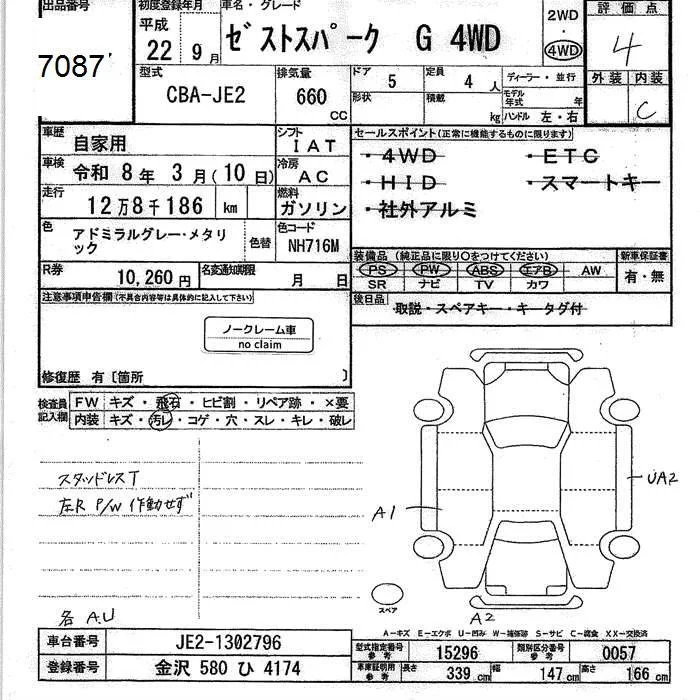 出品番号 初度登録年月 車名・グレード 2WD 評価点
平成 22年 9月 ｾﾞｽﾄｽﾊﾟｰｸ G 4WD 4WD 4
7087
型式 排気量 ドア 5 定員 4人 ディーラー・並行 外装 内装
CBA-JE2 660 CC 形状 積載 kg モデル年式 年 C
ハンドル 左・右
車歴 自家用 シフト IAT セールスポイント(正常に機能するものに限ります)
車検 令和 8年 3月(10日) 冷房 AC ・4WD ・ETC
走行 12万8千186 km 燃料 ガソリン ・HID ・スマートキー
・社外アルミ
色 アドミラルグレー・メタリック 色替 色コード NH716M
装備品 (純正品に限り○をつけてください) 新車保証書
PS PW ABS エアB AW 有・無
SR ナビ TV カワ
R券 10,260円 名変通知期限 月 日
後日品 取説・スペアキー・キータグ付
注意事項申告欄(不具合内容等は具体的に記入して下さい)
ノークレーム車
no claim
修復歴 有〔箇所 〕
検査員記入欄 FW キズ・飛石・ヒビ割・リペア跡・×要
内装 キズ・汚レ・コゲ・穴・スレ・キレ・破レ
スタッドレスT
左R P/W 作動せず
UA2
A1
スペア
A2
各 A.U
A-キズ E-エクボ U-凹み W-補修跡 S-サビ C-腐食 XX-交換済
車台番号 JE2-1302796 型式指定番号 参考 15296 類別区分番号 参考 0057
登録番号 金沢 580 ひ 4174 車車証明用 参考 長さ 339cm 幅 147cm 高さ 166cm